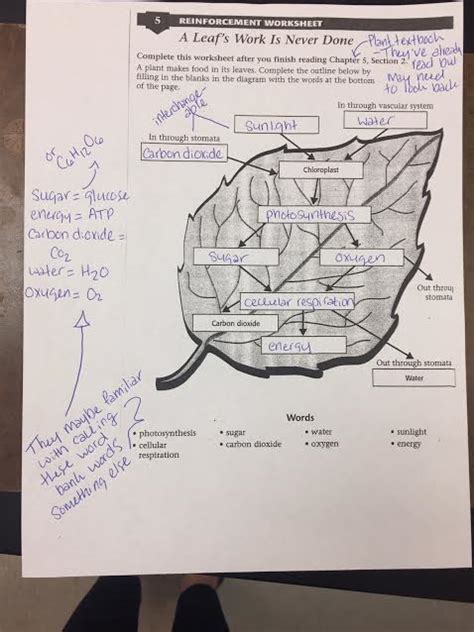 5 REINFORCEMENT WORKSHEET
A Leaf's Work Is Never Done
Complete this worksheet after you finish reading Chapter 5, Section 2.
A plant makes food in its leaves. Complete the outline below by
filling in the blanks in the diagram with the words at the bottom
of the page.
Plant textbook
- They've already
read but
may need
to look back
interchange-
able
In through vascular system
sunlight
water
In through stomata
Carbon dioxide
Chloroplast
photosynthesis
sugar
oxygen
Out throug
stomata
cellular respiration
Carbon dioxide
energy
Out through stomata
Water
or C6H12O6
sugar = glucose
energy = ATP
Carbon dioxide =
CO2
water = H2O
Oxygen = O2
They maybe familiar
with calling
these word
bank words
something else
Words
• photosynthesis • sugar • water • sunlight
• cellular • carbon dioxide • oxygen • energy
respiration